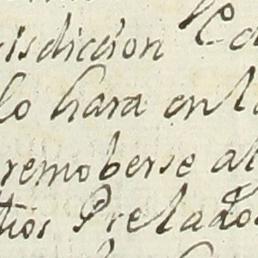 risdiccion Co
lo hara en la
remoberse al
tios Prelado